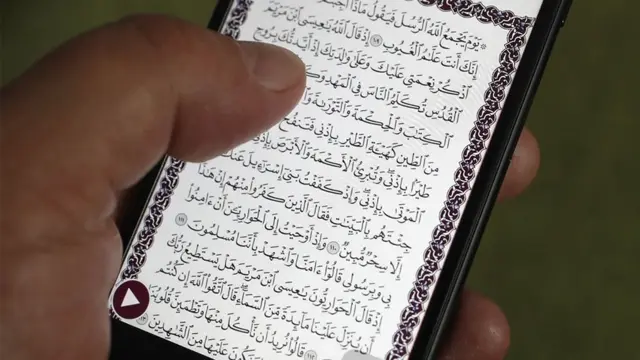 ۞ يَوْمَ يَجْمَعُ ٱللَّهُ ٱلرُّسُلَ فَيَقُولُ مَاذَآ
إِنَّكَ أَنتَ عَلَّـٰمُ ٱلْغُيُوبِ ١٠٩ إِذْ قَالَ ٱللَّهُ يَـٰعِيسَى ٱبْنَ مَرْيَمَ
ٱذْكُرْ نِعْمَتِى عَلَيْكَ وَعَلَىٰ وَٰلِدَتِكَ إِذْ أَيَّدتُّكَ بِرُوحِ
ٱلْقُدُسِ تُكَلِّمُ ٱلنَّاسَ فِى ٱلْمَهْدِ
ٱلْكِتَـٰبَ وَٱلْحِكْمَةَ وَٱلتَّوْرَىٰةَ
مِنَ ٱلطِّينِ كَهَيْـَٔةِ ٱلطَّيْرِ بِإِذْنِى فَتَنفُخُ
طَيْرًۢا بِإِذْنِى وَتُبْرِئُ ٱلْأَكْمَهَ وَٱلْأَبْرَصَ
ٱلْمَوْتَىٰ بِإِذْنِى وَإِذْ كَفَفْتُ بَنِىٓ إِسْرَٰٓءِيلَ عَنكَ
جِئْتَهُم بِٱلْبَيِّنَـٰتِ فَقَالَ ٱلَّذِينَ كَفَرُوا۟ مِنْهُمْ إِنْ هَـٰذَآ
إِلَّا سِحْرٌ مُّبِينٌ ١١٠ وَإِذْ أَوْحَيْتُ إِلَى ٱلْحَوَارِيِّـۧنَ أَنْ ءَامِنُوا۟
بِى وَبِرَسُولِى قَالُوٓا۟ ءَامَنَّا وَٱشْهَدْ بِأَنَّنَا مُسْلِمُونَ ١١١
إِذْ قَالَ ٱلْحَوَارِيُّونَ يَـٰعِيسَى ٱبْنَ مَرْيَمَ هَلْ يَسْتَطِيعُ رَبُّكَ
أَن يُنَزِّلَ عَلَيْنَا مَآئِدَةً مِّنَ ٱلسَّمَآءِ قَالَ ٱتَّقُوا۟ ٱللَّهَ إِن كُنتُم
١١٢ قَالُوا۟ نُرِيدُ أَن نَّأْكُلَ مِنْهَا وَتَطْمَئِنَّ قُلُوبُنَا
وَنَكُونَ عَلَيْهَا مِنَ ٱلشَّـٰهِدِينَ ١١٣